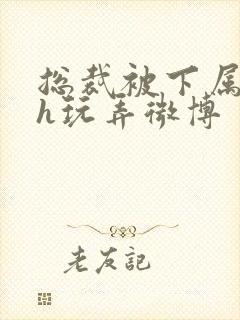 总裁被下属
h玩弄微博
老友記